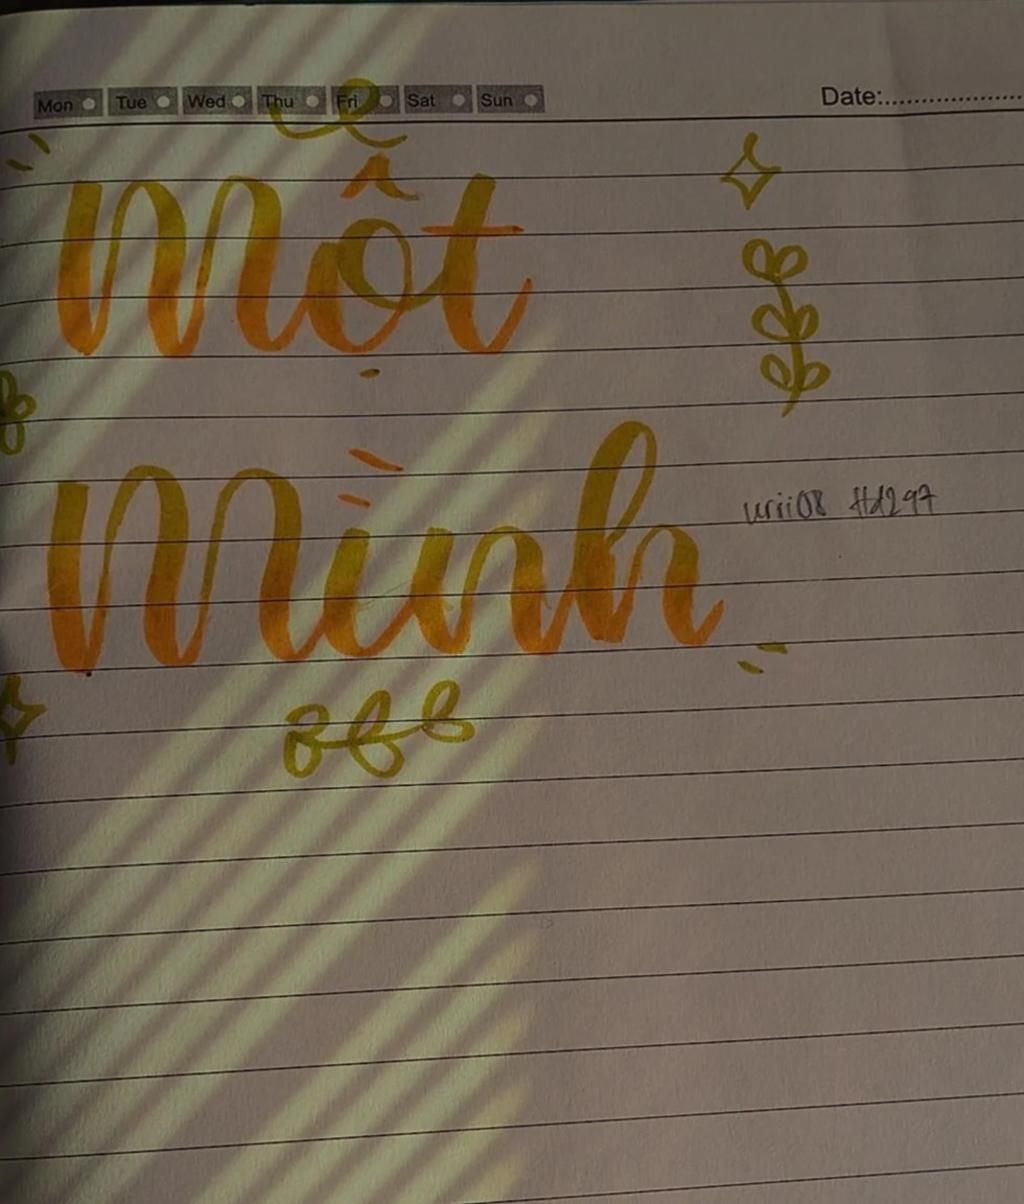 Mon Tue Wed Thu Fri Sat Sun
Date:
Một
Mình
urii08 Hd297